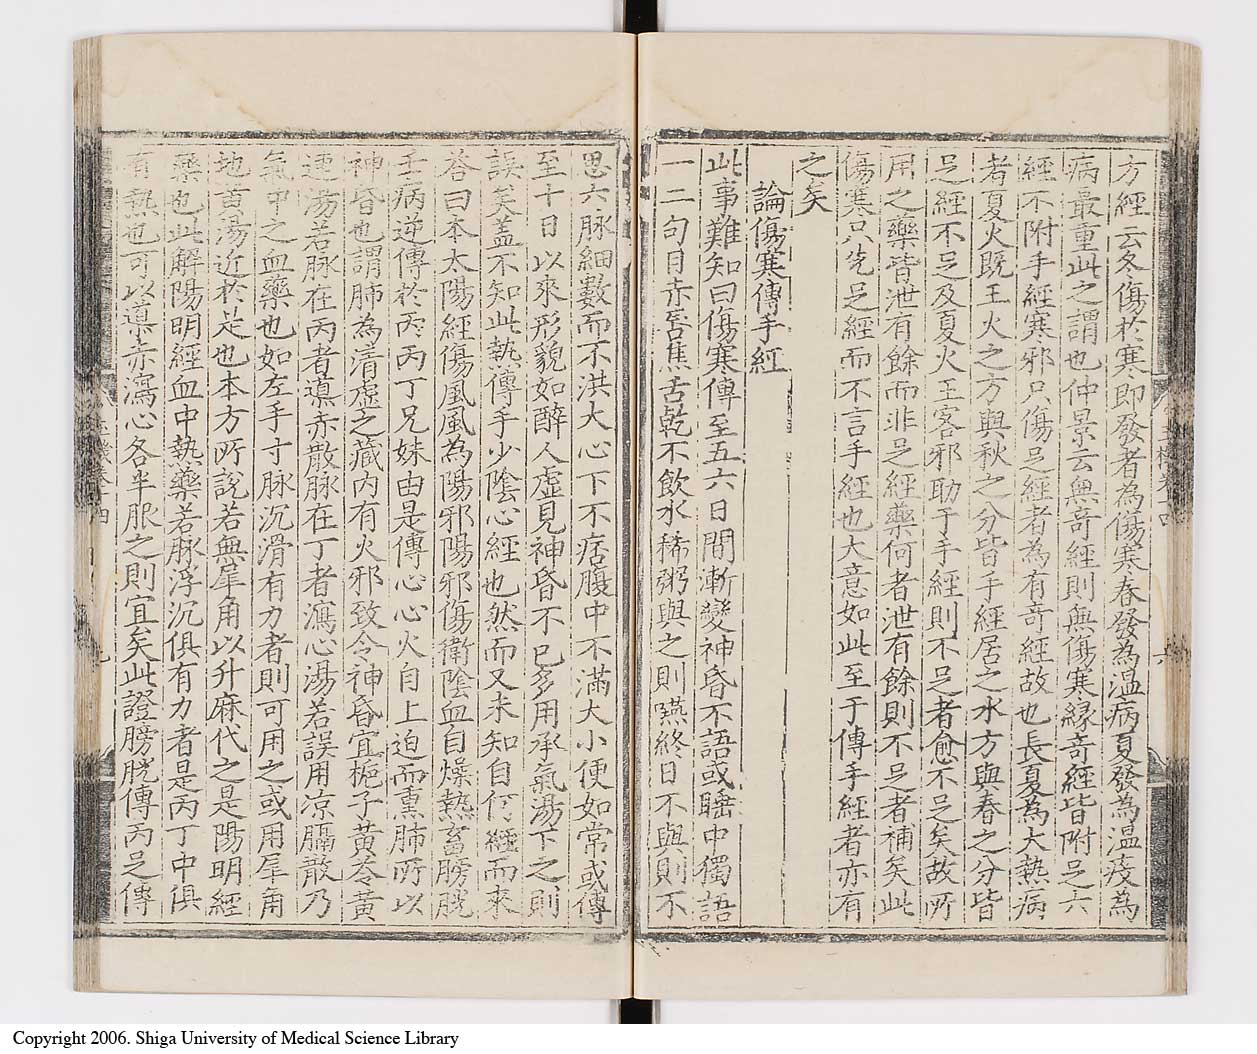 方經云冬傷於寒即發者為傷寒春發為溫病夏發為溫疫為
病最重此之謂也仲景云無奇經則無傷寒緣奇經皆附足六
經不附手經寒邪只傷足經者為有奇經故也長夏為大熱病
者夏火既王火之方與秋之分皆手經居之水方與春之分皆
足經不足及夏火王客邪助于手經則不足者愈不足矣故所
用之藥皆泄有餘而非足經藥何者泄有餘則不足者補矣此
傷寒只先足經而不言手經也大意如此至于傳手經者亦有
之矣
論傷寒傳手經
此事難知曰傷寒傳至五六日間漸變神昏不語或睡中獨語
一二句目赤唇焦舌乾不飲水稀粥與之則嚥終日不與則不
思六脉細數而不洪大心下不痞腹中不滿大小便如常或傳
至十日以來形貌如醉人虛見神昏不已多用承氣湯下之則
誤矣蓋不知此熱傳手少陰心經也然而又未知自何經而來
答曰本太陽經傷風風為陽邪陽邪傷衛陰血自燥熱畜膀胱
壬病逆傳於丙丙丁兄妹由是傳心心火自上迫而熏肺所以
神昏也謂肺為清虛之藏內有火邪致令神昏宜梔子黃芩黃
連湯若脉在丙者導赤散脉在丁者瀉心湯若誤用凉膈散乃
氣中之血藥也如左手寸脉沉滑有力者則可用之或用犀角
地黃湯近於是也本方所說若無犀角以升麻代之是陽明經
藥也此解陽明經血中熱藥若脉浮沉俱有力者是丙丁中俱
有熱也可以導赤瀉心各半服之則宜矣此證膀胱傳丙足傳
Copyright 2006. Shiga University of Medical Science Library